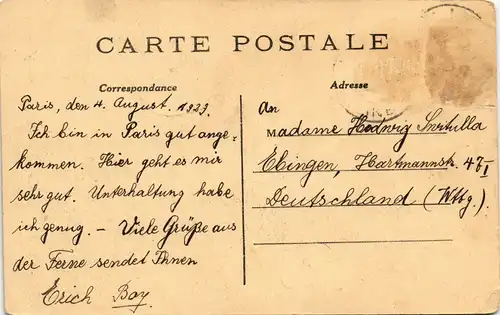 CARTE POSTALE
Correspondance
Paris, den 4. August. 1929.
Ich bin in Paris gut ange-
kommen. Hier geht es mir
sehr gut. Unterhaltung habe
ich genug. – Viele Grüße aus
der Ferne sendet Ihnen
Erich Boy.
Adresse
An
Madame Hedwig
Ebingen, Hartmannstr. 47 I
Deutschland (Wttg.)